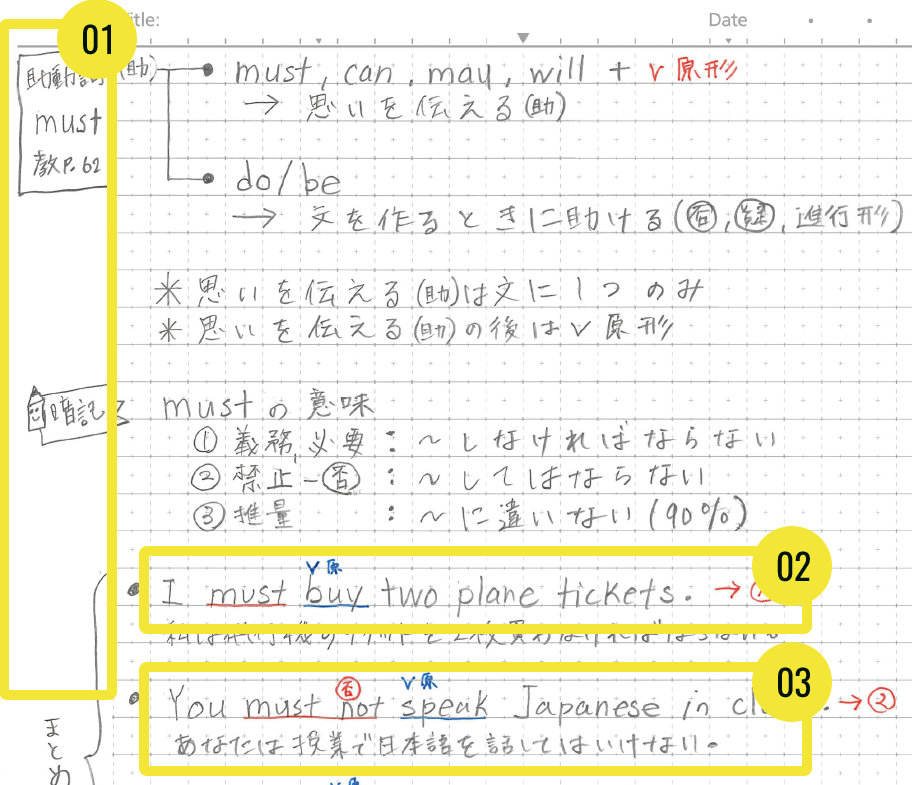 Title: Date
01
助動詞 (助) must, can, may, will + V原形
→ 思いを伝える(助)
must
教P.62
do/be
→ 文を作るときに助ける(否,疑,進行形)
※思いを伝える(助)は文に1つのみ
※思いを伝える(助)の後はV原形
暗記 mustの意味
①義務,必要:~しなければならない
②禁止-否:~してはならない
③推量:~に違いない(90%)
V原 02
I must buy two plane tickets. →
否 V原 03
You must not speak Japanese in →②
あなたは授業で日本語を話してはいけない。
まとめ
V原